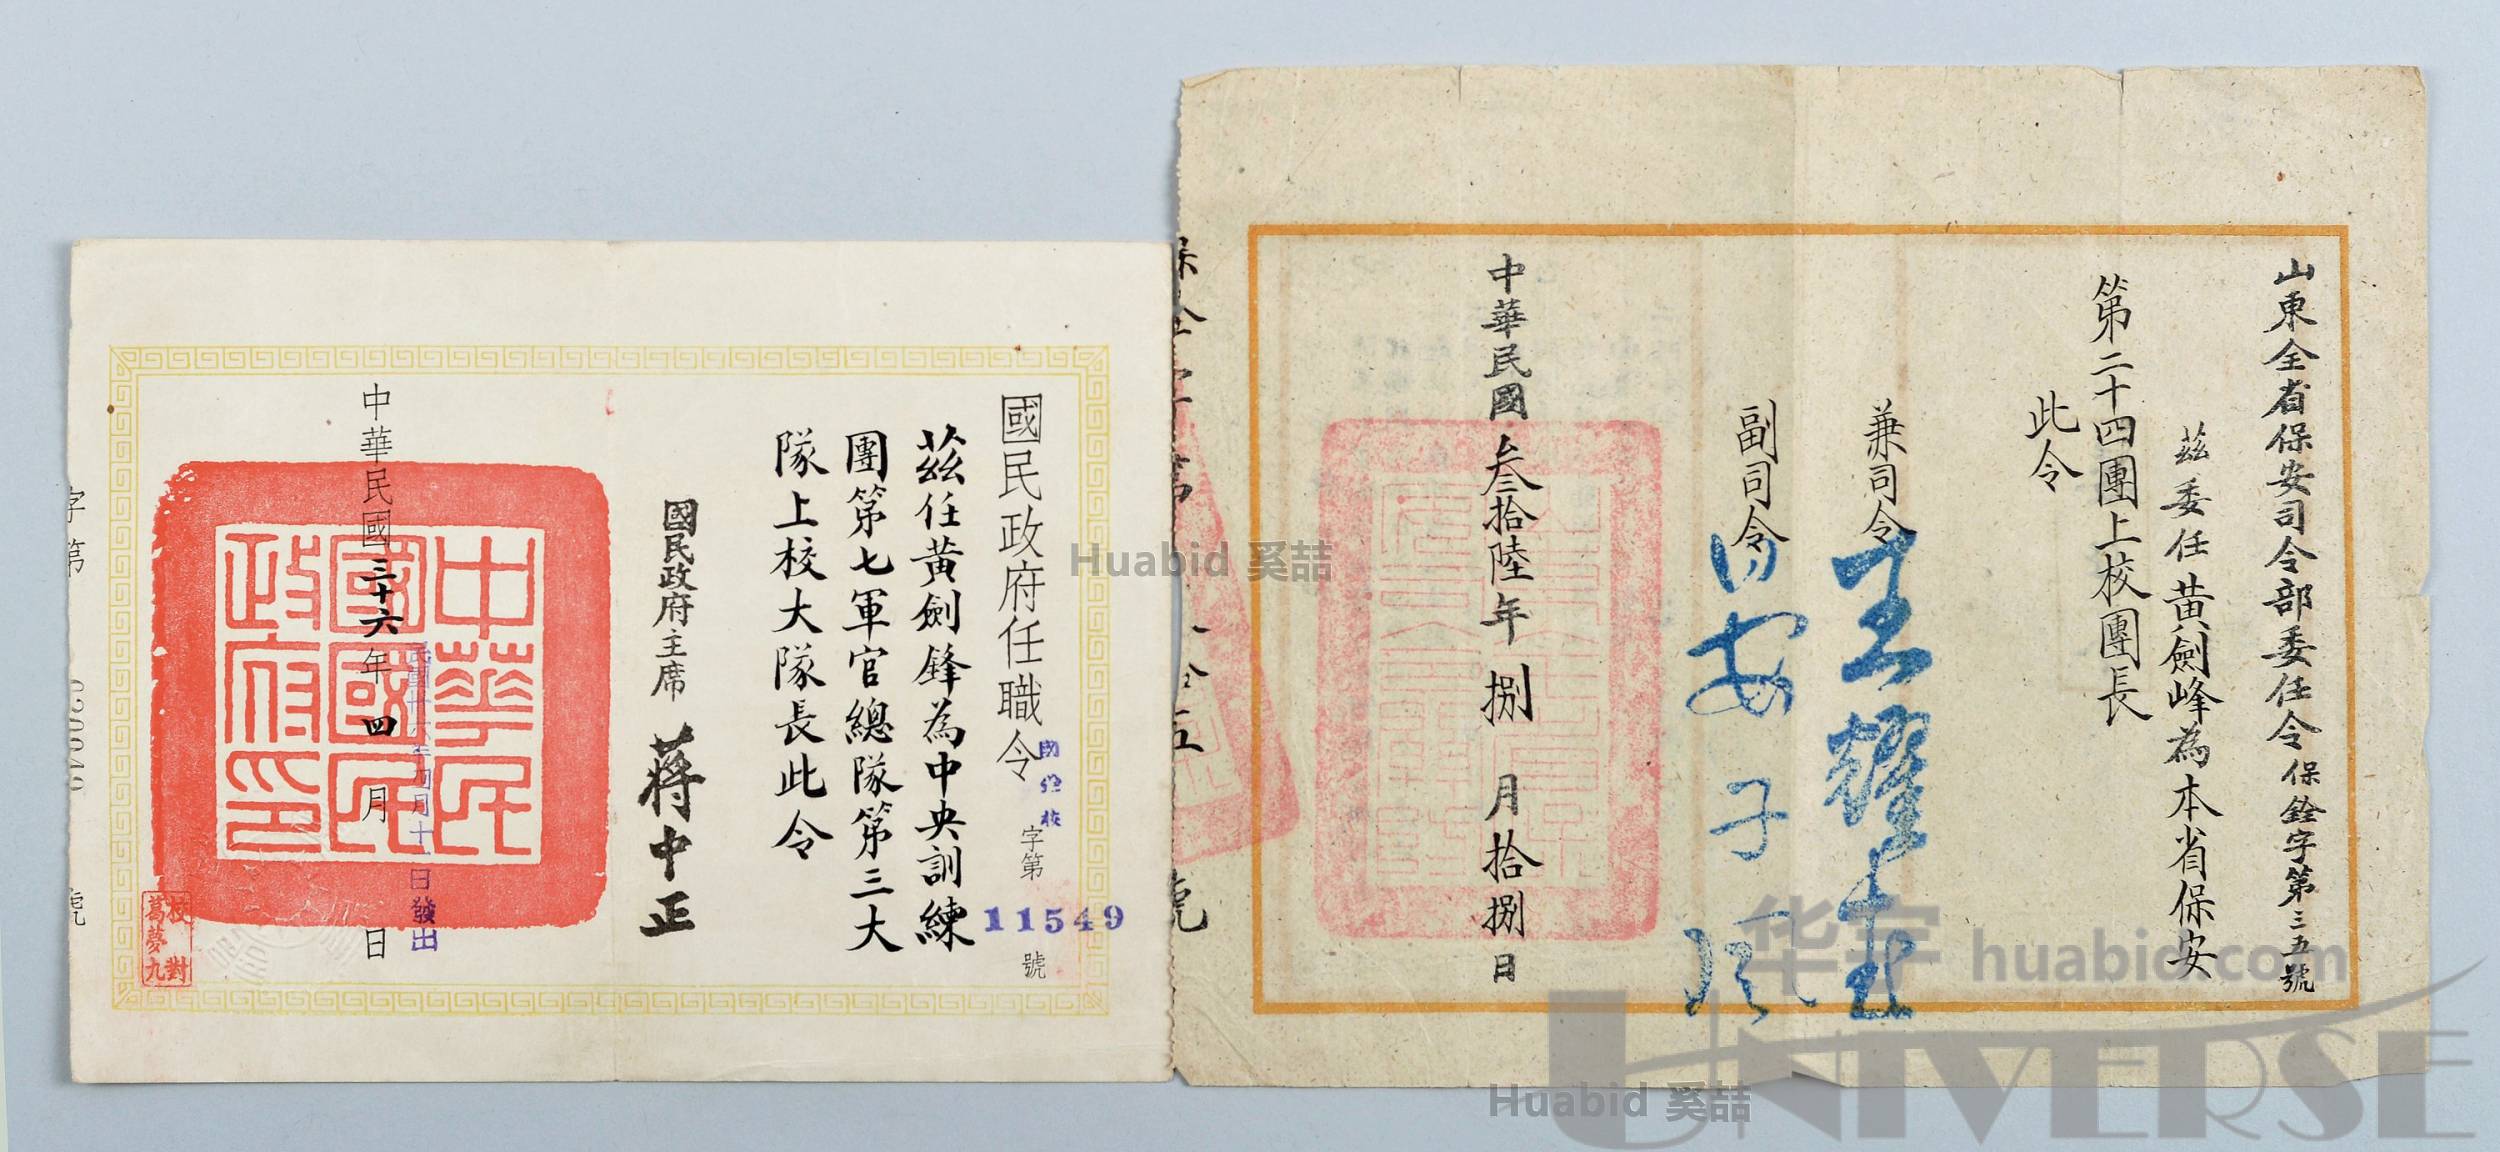 山東全省保安司令部委任令 保銓字第三五號
茲委任黃劍峰為本省保安
第二十四團上校團長
此令
兼司令 王耀武
副司令
中華民國叁拾陸年捌月拾捌日
國民政府任職令
字第11549號
茲任黃劍鋒為中央訓練
團第七軍官總隊第三大
隊上校大隊長此令
國民政府主席 蔣中正
中華民國三十六年四月日
民國卅六年四月十一日發出
中華民
國國民
政府印
校對
葛夢九
字第
號
Huabid 奚喆
华宇 huabid.com
UNIVERSE
Huabid 奚喆